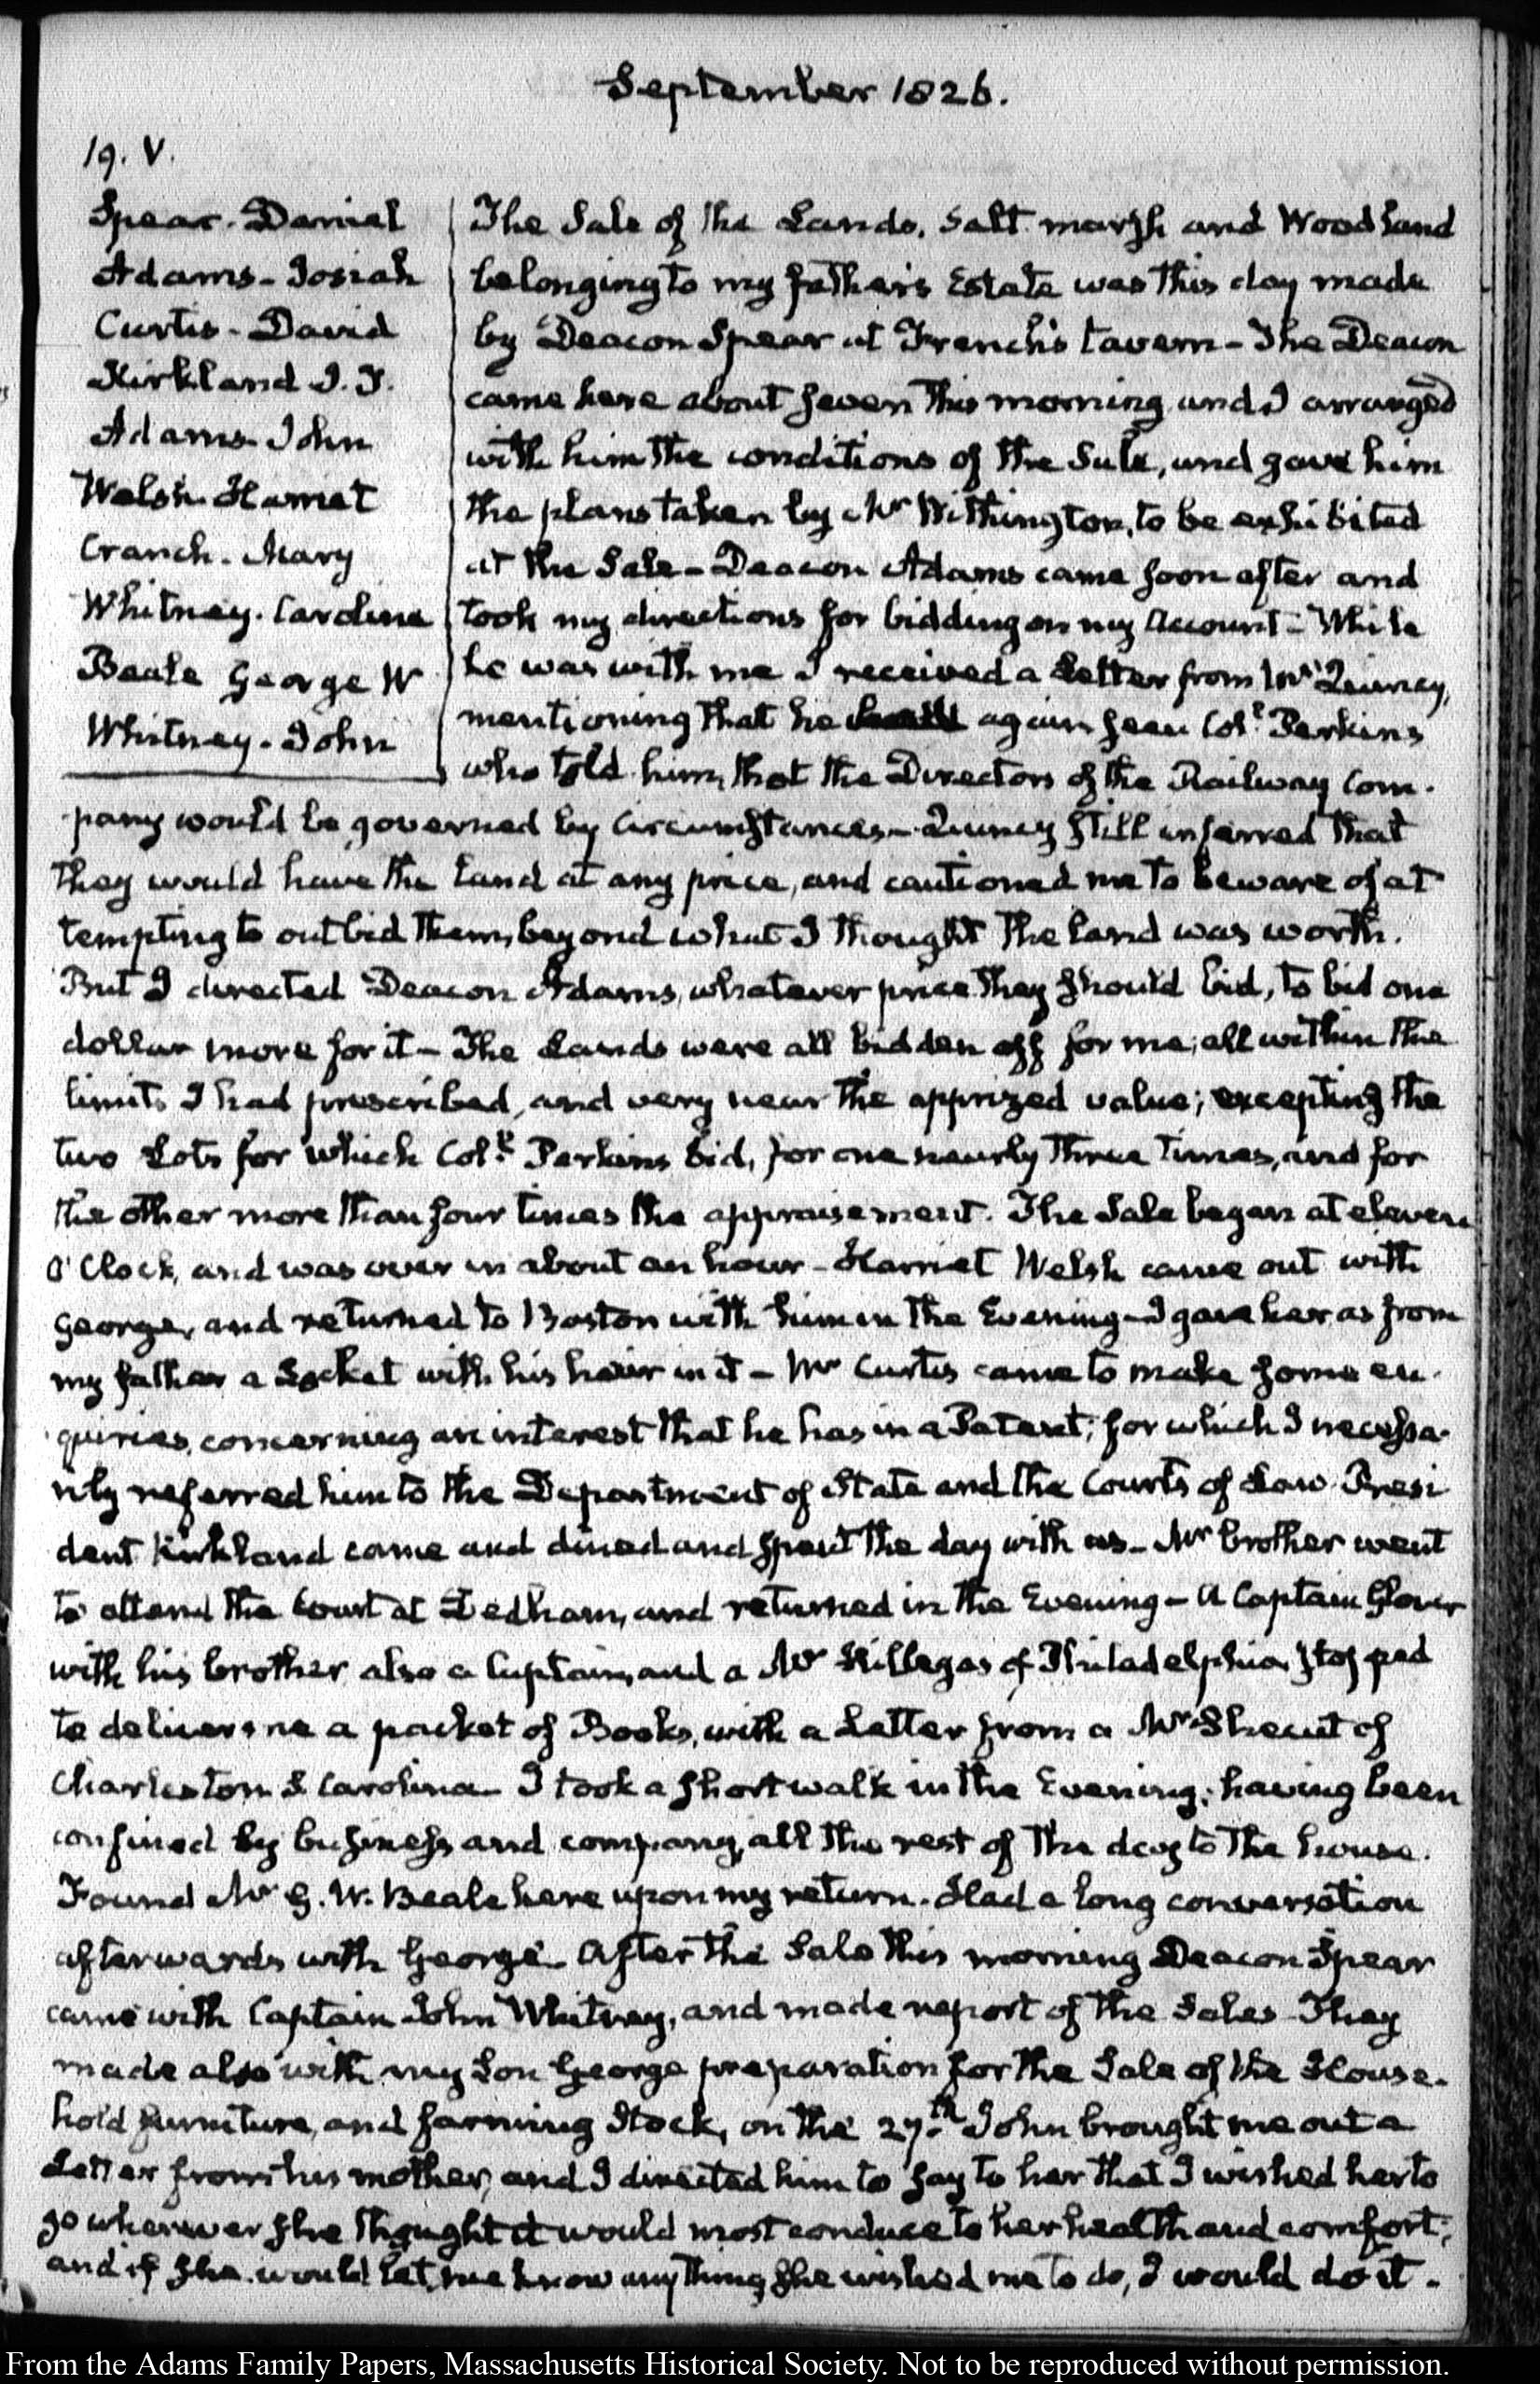 September 1826.
19. V.
Spear. Daniel
Adams - Josiah
Curtis - David
Kirkland J. T.
Adams John
Welsh Harriet
Cranch. Mary
Whitney. Caroline
Beale George W
Whitney - John
The Sale of the Lands, Salt marsh and Woodland
belonging to my father's Estate was this day made
by Deacon Spear at French's tavern - The Deacon
came here about seven this morning and I arranged
with him the conditions of the Sale, and gave him
the plans taken by Mr Withington, to be exhibited
at the Sale - Deacon Adams came soon after and
took my directions for bidding on my Account - While
he was with me I received a Letter from Mr Quincy,
mentioning that he again seen Coll. Perkins
who told him, that the Directors of the Railway Com-
pany would be governed by circumstances - Quincy still inferred that
they would have the land at any price, and cautioned me to beware of at
tempting to outbid them, beyond what I thought the land was worth.
But I directed Deacon Adams, whatever price they should bid, to bid one
dollar more for it - The Lands were all bidden off for me; all within the
limits I had prescribed, and very near the apprized value; excepting the
two Lots for which Coll. Perkins bid, for one nearly three times, and for
the other more than four times the appraisement. The Sale began at eleven
O'Clock, and was over in about an hour - Harriet Welsh came out with
George, and returned to Boston with him in the Evening - I gave her as from
my father a Locket with his hair in it - Mr Curtis came to make some en-
quiries concerning an interest that he has in a Patent; for which I necessa-
rily referred him to the Department of State and the Courts of Law. Presi
dent Kirkland came and dined and spent the day with us - My brother went
to attend the Court at Dedham, and returned in the Evening - A Captain Glover
with his brother also a Captain, and a Mr Hillegas of Philadelphia stopped
to deliver me a packet of Books, with a Letter from a Mr Shecut of
Charleston S. Carolina - I took a short walk in the Evening; having been
confined by business and company, all the rest of the day to the house.
Found Mr G. W. Beale here upon my return. Had a long conversation
afterwards with George. After the Sale this morning Deacon Spear
came with Captain John Whitney, and made report of the Sales - They
made also with my Son George preparation for the Sale of the House-
hold furniture, and farming Stock, on the 27th. John brought me out a
Letter from his mother, and I directed him to say to her that I wished her to
go wherever she thought it would most conduce to her health and comfort;
and if she would let me know any thing she wished me to do, I would do it.
From the Adams Family Papers, Massachusetts Historical Society. Not to be reproduced without permission.